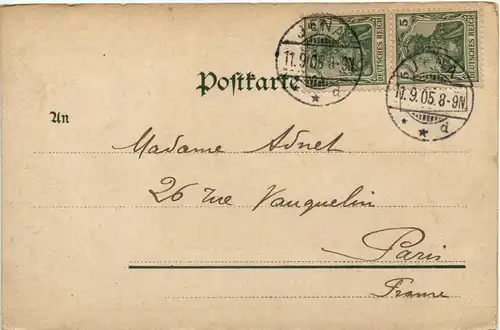 JENA
11.9.05.8-9N.
d
DEUTSCHES REICH
5
JENA
11.9.05.8-9N.
d
DEUTSCHES REICH
Postkarte
An
Madame Adnet
26 rue Vauquelin
Paris
France